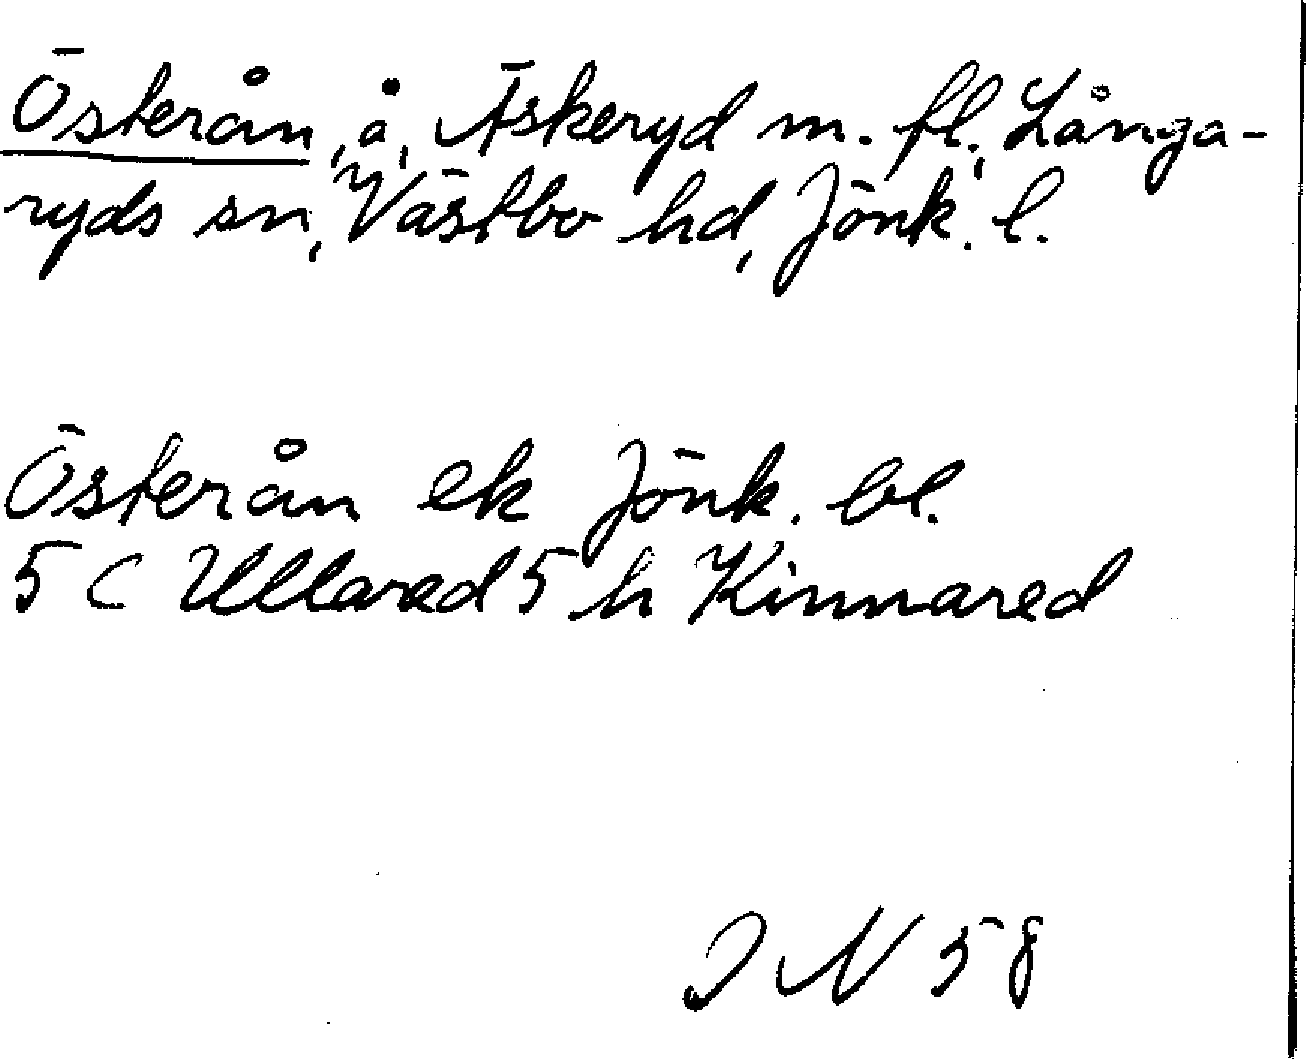 Österån, å, Äskeryd m. fl., Långa-
ryds sn, Västbo hd, Jönk. l.
Österån ek Jönk. bl.
5 C Ullared 5 h Kinnared
I N 58